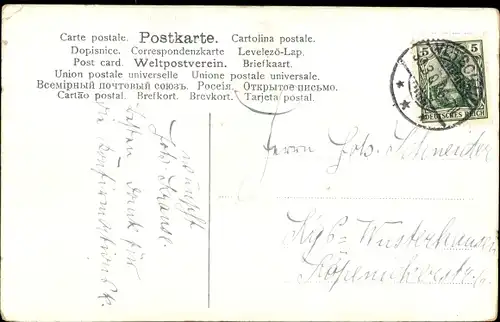 Carte postale. Postkarte. Cartolina postale.
Dopisnice. Correspondenzkarte Levelező-Lap.
Post card. Weltpostverein. Briefkaart.
Union postale universelle Unione postale universale.
Всемірный почтовый союзъ. Россія. Открытое письмо.
Cartão postal. Brefkort. Brevkort. Tarjeta postal.
5 5
DEUTSCHES REICH
Herrn Joh. Schneider
Kgs=Wusterhausen
Köpenickerstr.
wünscht
Joh. Krause.
besten Dank für
die